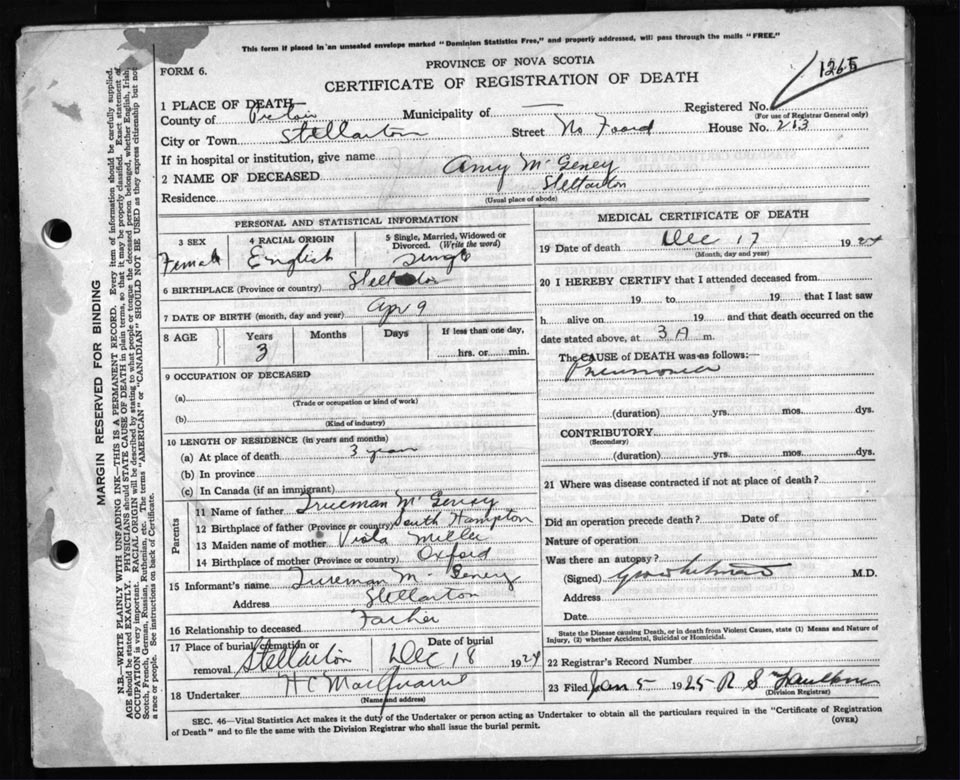 This form if placed in an unsealed envelope marked "Dominion Statistics Free," and properly addressed, will pass through the mails "FREE."
PROVINCE OF NOVA SCOTIA
FORM 6.
CERTIFICATE OF REGISTRATION OF DEATH
1265
1 PLACE OF DEATH—
County of Pictou Municipality of — Registered No.
(For use of Registrar General only)
City or Town Stellarton Street No Foord House No. 213
If in hospital or institution, give name
2 NAME OF DECEASED Amy McGeney
Residence Stellarton
(Usual place of abode)
PERSONAL AND STATISTICAL INFORMATION
3 SEX 4 RACIAL ORIGIN 5 Single, Married, Widowed or Divorced. (Write the word)
Female English Single
6 BIRTHPLACE (Province or country) Stellarton
7 DATE OF BIRTH (month, day and year) Apr 9
8 AGE Years Months Days If less than one day,
3 hrs. or min.
9 OCCUPATION OF DECEASED
(a)
(Trade or occupation or kind of work)
(b)
(Kind of industry)
10 LENGTH OF RESIDENCE (in years and months)
(a) At place of death 3 years
(b) In province
(c) In Canada (if an immigrant)
Parents
11 Name of father Trueman McGeney
12 Birthplace of father (Province or country) South Hampton
13 Maiden name of mother Viola Miller
14 Birthplace of mother (Province or country) Oxford
15 Informant's name Trueman McGeney
Address Stellarton
16 Relationship to deceased Father
17 Place of burial, cremation or removal Stellarton Date of burial Dec 18 1924
18 Undertaker H C
(Name and address)
MEDICAL CERTIFICATE OF DEATH
19 Date of death Dec 17 1924
(Month, day and year)
20 I HEREBY CERTIFY that I attended deceased from
19 to 19 that I last saw
h alive on 19 and that death occurred on the
date stated above, at 3 A m.
The CAUSE of DEATH was as follows:—
Pneumonia
(duration) yrs. mos. dys.
CONTRIBUTORY
(Secondary)
(duration) yrs. mos. dys.
21 Where was disease contracted if not at place of death?
Did an operation precede death? Date of
Nature of operation
Was there an autopsy?
(Signed) M.D.
Address
Date
State the Disease causing Death, or in death from Violent Causes, state (1) Means and Nature of
Injury, (2) whether Accidental, Suicidal or Homicidal.
22 Registrar's Record Number
23 Filed Jan 5 1925 R S Faulkner
(Division Registrar)
SEC. 46—Vital Statistics Act makes it the duty of the Undertaker or person acting as Undertaker to obtain all the particulars required in the "Certificate of Registration
of Death" and to file the same with the Division Registrar who shall issue the burial permit.
(OVER)
MARGIN RESERVED FOR BINDING
N.B.—WRITE PLAINLY WITH UNFADING INK—THIS IS A PERMANENT RECORD. Every item of information should be carefully supplied.
AGE should be stated EXACTLY. PHYSICIANS should STATE CAUSE OF DEATH in plain terms, so that it may be properly classified. Exact statement of
OCCUPATION is very important. RACIAL ORIGIN will be described by stating to what people or tongue the deceased person belonged, whether English, Irish,
Scotch, French, German, Russian, Ruthenian, etc. The terms "AMERICAN" or "CANADIAN" SHOULD NOT BE USED as they express citizenship but not
a race or people. See instructions on back of Certificate.